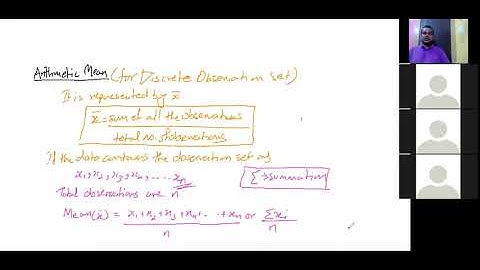 Arithmetic Mean (for Discrete Observation set)
It is represented by x̄
x̄ = sum of all the observations / total no. of observations
If the data contains the observation set as
x₁, x₂, x₃, x₄, .... xₙ
Σ → summation
Total observations are n
Mean(x̄) = x₁+x₂+x₃+x₄+...+xₙ / n or Σxi / n